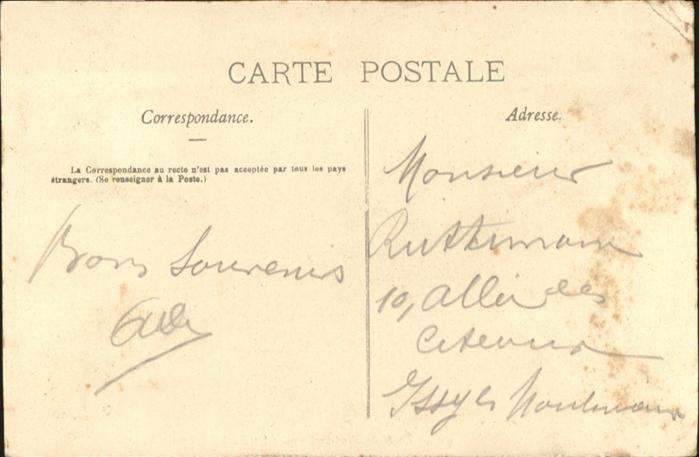 CARTE POSTALE
Correspondance.
La Correspondance au recto n'est pas acceptée par tous les pays
étrangers. (Se renseigner à la Poste.)
Bons Souvenirs
Adresse.
Monsieur
10, allée des
Issy les Moulineaux